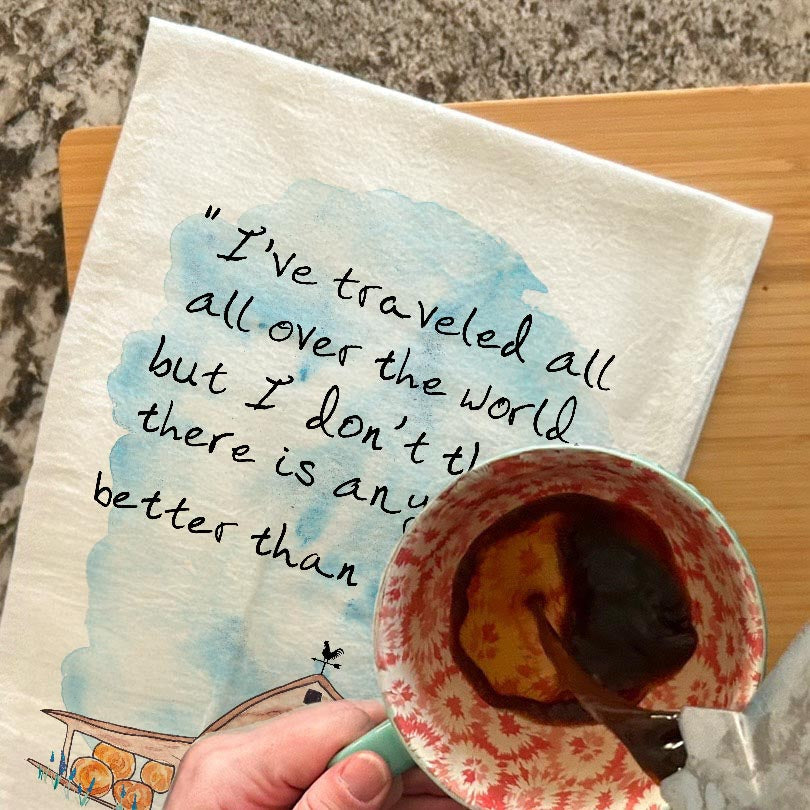 "I've traveled all
all over the world,
but I don't
there is
better than